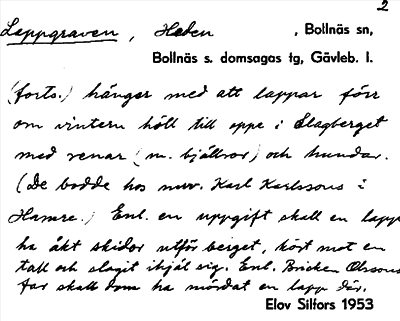 2
Lappgraven, Heden, Bollnäs sn,
Bollnäs s. domsagas tg, Gävleb. l.
(forts.) hänger med att lappar förr
om vintern höll till uppe i Slagberget
med renar (m. bjällror) och hundar.
(De bodde hos nuv. Karl Karlssons i
Hamre.) Enl. en uppgift skall en lapp
ha åkt skidor utför berget, kört mot en
tall och slagit ihjäl sig. Enl. Bricken Olssons
far skall dom ha mördat en lapp där.
Elov Silfors 1953